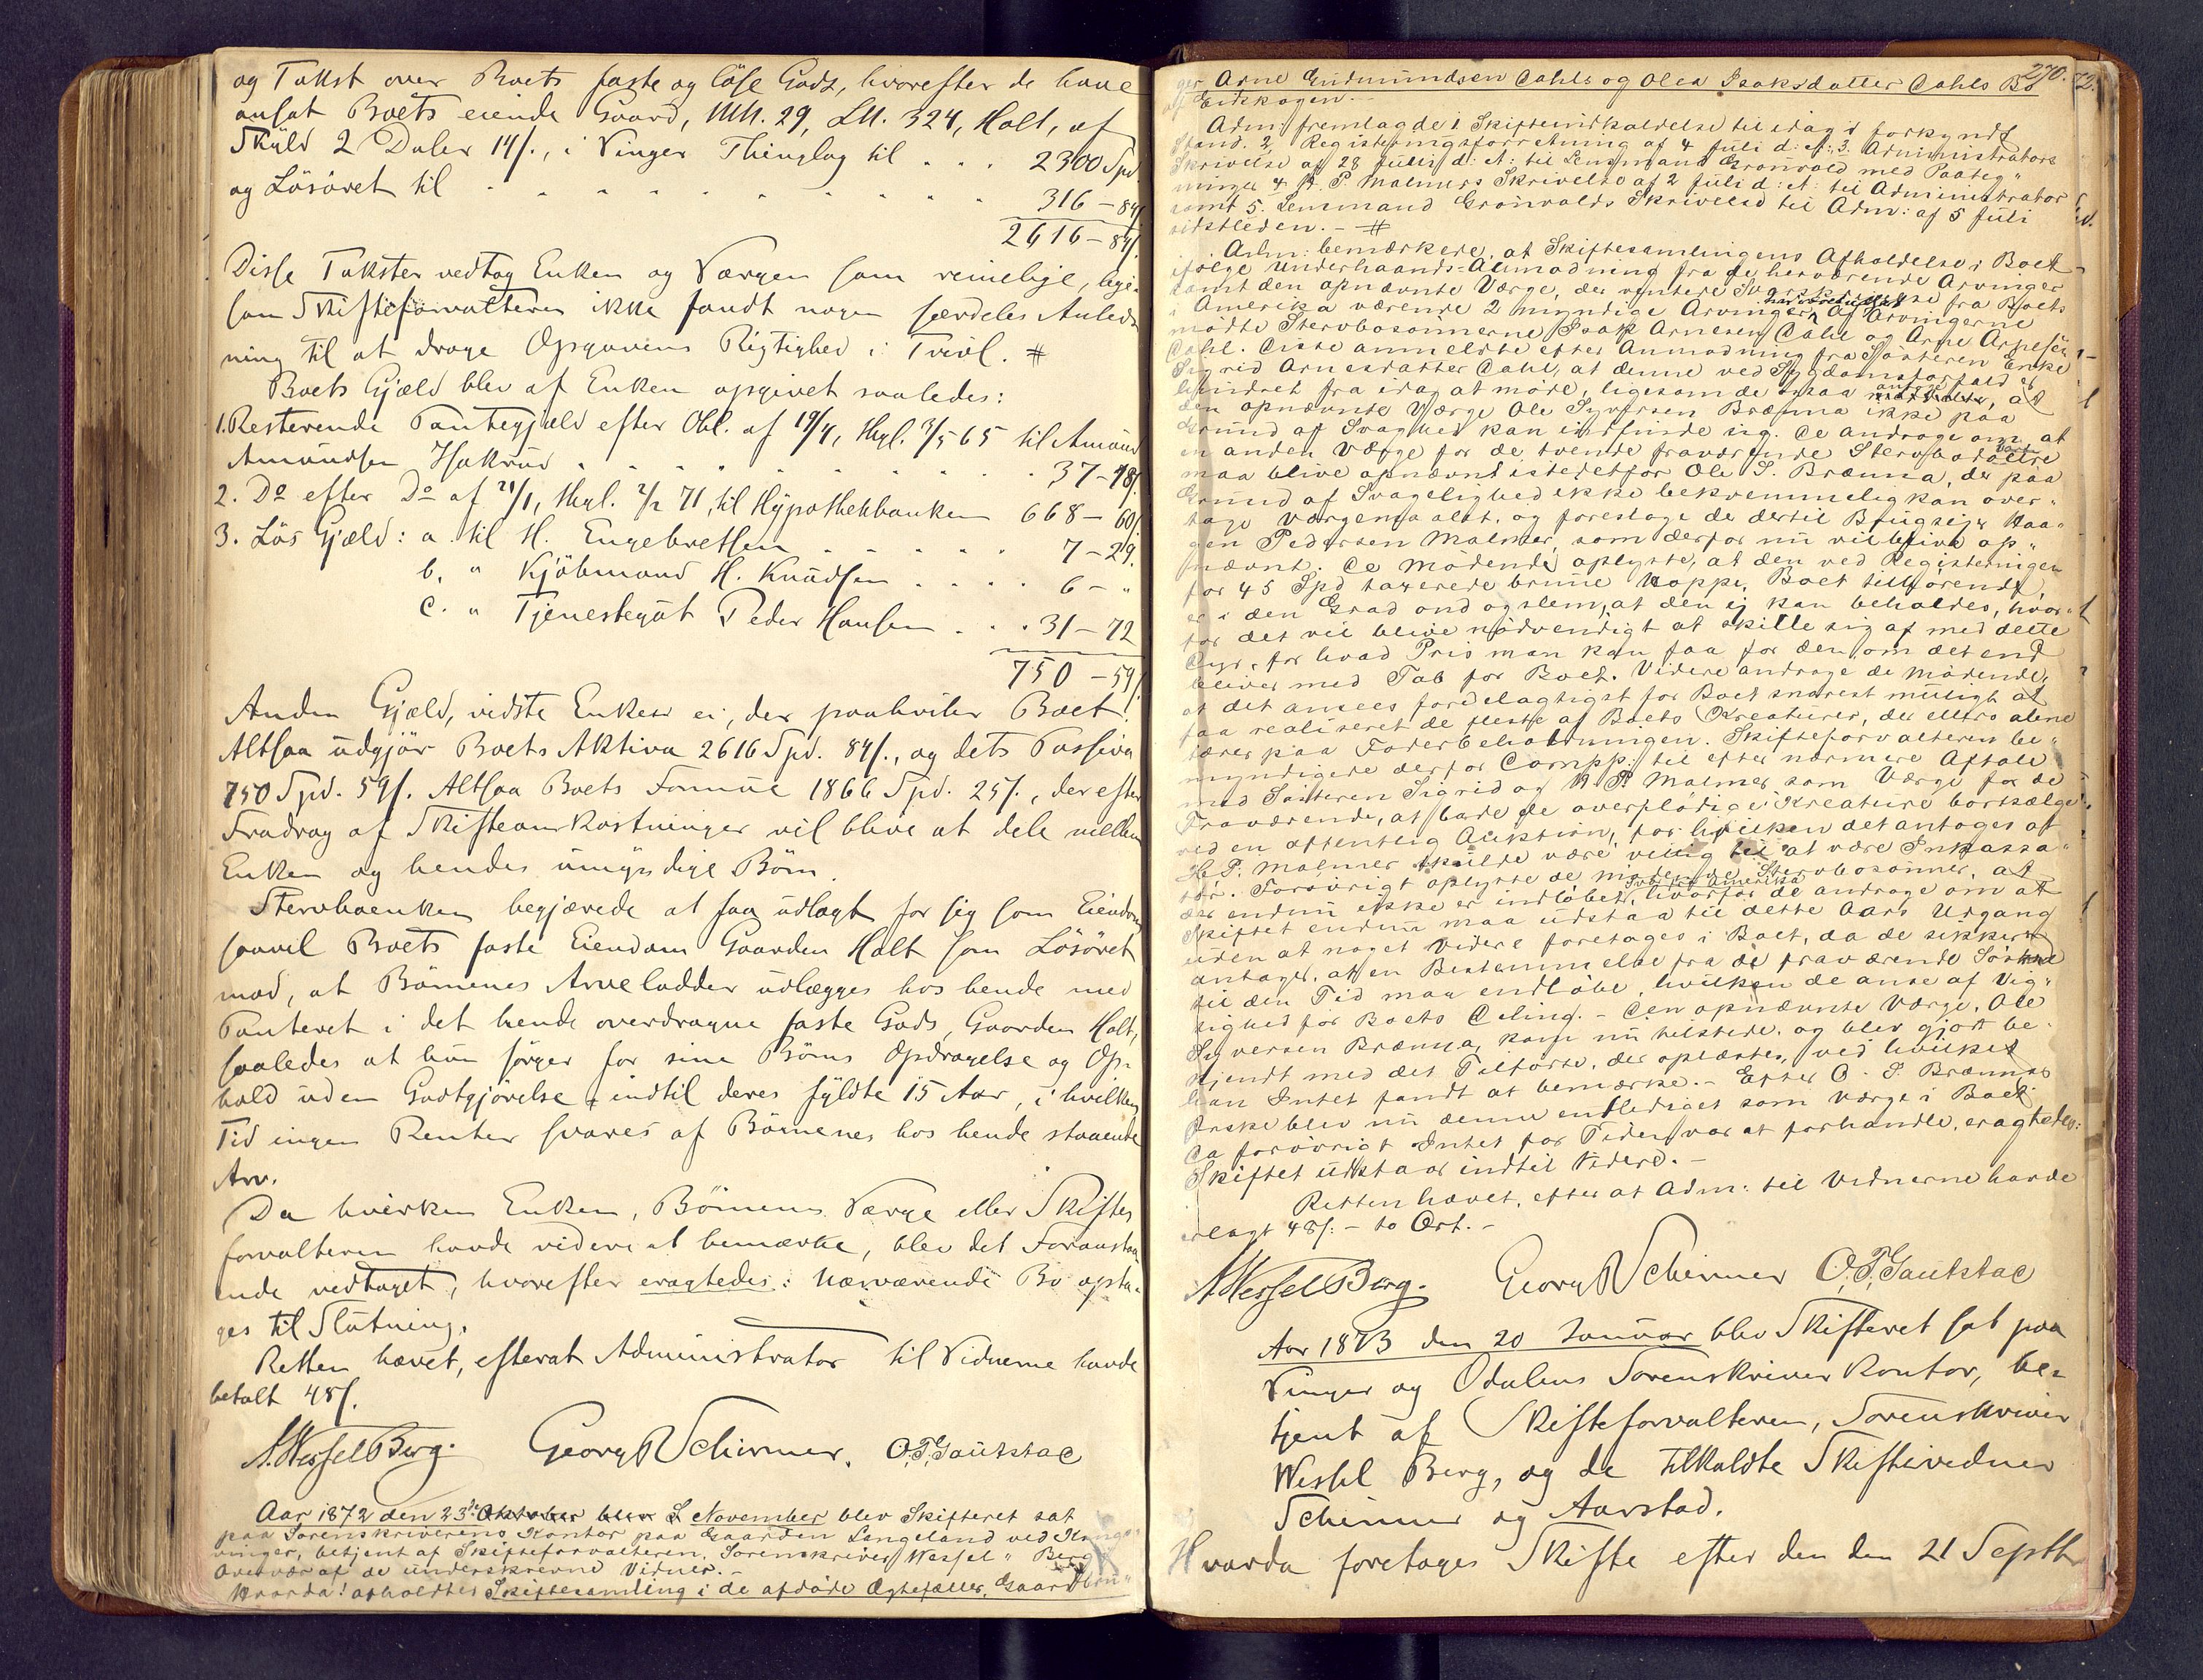 og Takst over Boets faste og löse Gods, hvorefter de have
ansat Boets eiende Gaard, MN. 29, LN. 324, Holt, af
Skyld 2 Daler 14 s., i Vinger Thinglag til . . . 2300 Spd.
og Lösöret til . . . . . . . . . 316 - 84 s.
2616 - 84 s.
Disse Takster vedtog Enken og Værgen som rimelige, lige-
som Skifteforvalteren ikke fandt nogen særdeles Anled-
ning til at drage Opgavens Rigtighed i Tvivl. #
Boets Gjæld blev af Enken opgivet saaledes:
1. Resterende Pantegjæld efter Obl. af 19/4, thgl. 3/5 65 til Amund
Amundsen . . . . . . . . . 37 - 18 s.
2. Do efter Do af 21/1, thgl. 2/2 71, til Hypothekbanken 668 - 60 s.
3. Lös Gjæld: a. til H. Engebretsen . . . . . 7 - 29.
b. " Kjöbmand H. Knudsen . . . . 6 - "
c. " Tjenestegut Peder Hansen . . . 31 - 72
750 - 59 s.
Anden Gjæld, vidste Enken ei, der paahviler Boet.
Altsaa udgjör Boets Aktiva 2616 Spd. 84 s., og dets Passiva
750 Spd. 59 s. Altsaa Boets Formue 1866 Spd. 25 s., der efter
Fradrag af Skifteomkostninger vil blive at dele mellem
Enken og hendes umyndige Börn.
Stervboenken begjærede at faa udlagt for sig som Eiendom
saavel Boets faste Eiendom Gaarden Holt som Lösöret
mod, at Börnenes Arvelodder udlægges hos hende med
Panteret i det hende overdragne faste Gods, Gaarden Holt,
saaledes at hun sörger for sine Börns Opdragelse og Op-
hold uden Godtgjörelse indtil deres fyldte 15 Aar, i hvilken
Tid ingen Renter svares af Börnenes hos hende staaende
Arv.
Da hverken Enken, Börnenes Værge eller Skifte-
forvalteren havde videre at bemærke, blev det Foranstaa-
ende vedtaget, hvorefter eragtedes: Nærværende Bo opta-
ges til Slutning.
Retten hævet, efterat Administrator til Vidnerne havde
betalt 48 s.
A. Wessel Berg. Georg R Schirmer. O.T. Gaukstad
Aar 1872 den 23de Oktober blev S November blev Skifteret sat
paa Sorenskriverens Kontor paa Gaarden Langeland ved Kongs-
vinger, betjent af Skifteforvalteren, Sorenskriver Wessel " Berg
Overvær af de underskrevne Vidner. -
Hvorda: afholdtes Skiftesamling i de afdöde Ægtefæller, Gaardbru"
270.
ger Arne Gudmundsen Dahls og Olea Isaksdatter Dahls Bo
af Eidskogen. -
Adm: fremlagde 1 Skifteindkaldelse til idag i forkyndt
Stand. 2, Registeringsforretning af 4 Juli d: A: 3. Administrators
Skrivelse af 28 Juli d: A: til Lensmand Grönvold med Paateg"
ninger 4 H. P. Malmers Skrivelse af 2 Juli d: A: til Administrator
samt 5. Lensmand Grönvolds Skrivelse til Adm: af 5 Juli
sidstleden. - #
Adm: bemærkede, at Skiftesamlingens Afholdelse i Boet
ifölge Underhaands-Anmodning fra de herværende Arvinger
samt den opnævnte Værge, der ventede Svarskrivelse fra Boets
i Amerika værende 2 myndige Arvinger, Af Arvingerne
mödte Stervbosönnerne Isak Arnesen Dahl og Arne Arnesen
Dahl. Disse anmeldte efter Anmodning fra Sösteren Enke
Sigrid Arnesdatter Dahl, at denne ved Sygdomsforfald er
hindret fra idag at möde, ligesom de ogsaa anförte, at
den opnævnte Værge Ole Syversen Brænna ikke paa
Grund af Svaghed kan indfinde sig. De androge om at
en anden Værge for de tvende fraværende Stervbodöttre
maa blive opnævnt istedetfor Ole S. Brænna, der paa
Grund af Svagelighed ikke bekvemmelig kan over"
tage Værgemaalet, og foresloge de dertil Brugeier Haa"
gen Pedersen Malmer, som derfor nu vil blive op"
nævnt. De Mödende oplyste, at den ved Registeringen
for 45 Spd taxerede brune Hoppe, Boet tilhörende,
er i den Grad ond og slem, at den ej kan beholdes, hvor"
for det vil blive nödvendigt at skille sig af med dette
Dyr, for hvad Pris man kan faa for den, om det end
bliver med Tab for Boet. Videre androge de Mödende,
at det ansees fordelagtigst for Boet snarest muligt at
faa realiseret de fleste af Boets Kreaturer, der ellers alene
tærer paa Foderbeholdningen. Skifteforvalteren be"
myndigede derfor Compp: til efter nærmere Aftale
med Sösteren Sigrid og H. P. Malmer som Værge for de
Fraværende, at lade de overflödige Kreature bortsælge
ved en offentlig Auktion, for hvilken det antoges at
H. P. Malmer skulde være villig til at være Inkassa"
tör. Forövrigt oplyste de mödende Stervbosönner, at
Svar fra Amerika
der endnu ikke er indlöbet, hvorfor de androge om at
Skiftet endnu maa udstaa til dette Aars Udgang
uden at noget Videre foretages i Boet, da de sikkert
antager, at en Bestemmelse fra de fraværende Söstre
til den Tid maa indlöbe, hvilken de anse af Vig"
tighed for Boets Deling. - Den opnævnte Værge, Ole
Syversen Brænna, kom nu tilstede, og blev gjort be-
kjendt med det Tilförte, der oplæstes, ved hvilket
han Intet fandt at bemærke. - Efter O. S. Brænnas
Önske blev nu denne entlediget som Værge i Boet.
Da forövrigt Intet for Tiden var at forhandle, eragtedes:
Skiftet udstaar indtil Videre. -
Retten hævet, efter at Adm: til Vidnerne havde
erlagt 48 s: - to Ort. -
A Wessel Berg. Georg R Schirmer O.T. Gaukstad
Aar 1873 den 20 Januar blev Skifteret sat paa
Vinger og Odalens Sorenskriver Kontor, be-
tjent af Skifteforvalteren, Sorenskriver
Wessel Berg, og de tilkaldte Skiftevidner
Schirmer og Aarstad.
Hvorda foretoges Skifte efter den den 21 Septbr